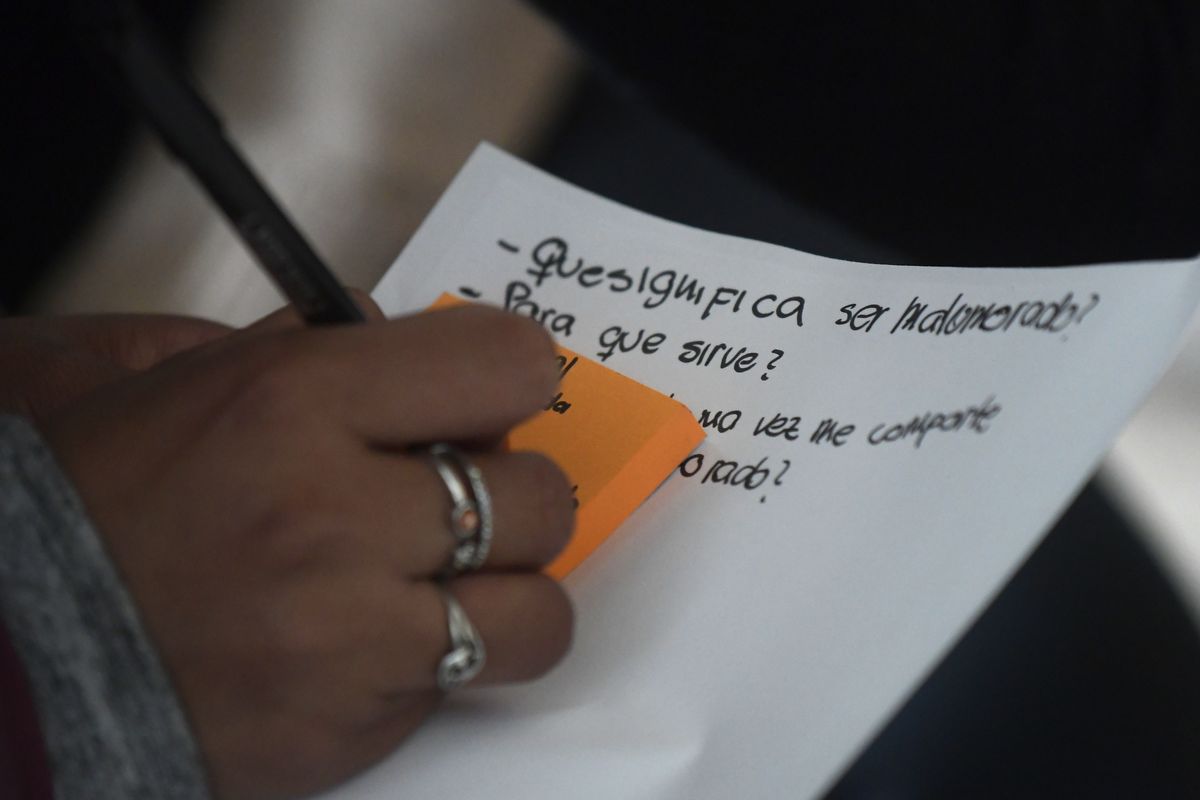 - Que significa ser malomorado?
- Para que sirve?
vez me comporte
orado?